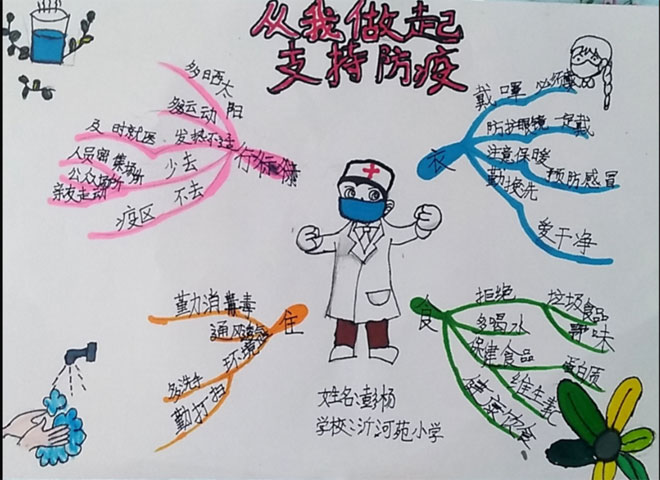 从我做起
支持防疫
多晒太阳
多运动
及时就医
发热不适
人员密集场所
公众场所
亲友走动
少去
疫区
不去
行
衣
戴
必须戴
防护眼镜一定戴
注意保暖
预防感冒
勤换洗
爱干净
住
勤消毒
通风
环境
多洗手
勤打扫
食
拒绝
垃圾食品
野味
多喝水
保健食品
蛋白质
维生素
健康饮食
姓名:彭杨
学校:沂河苑小学